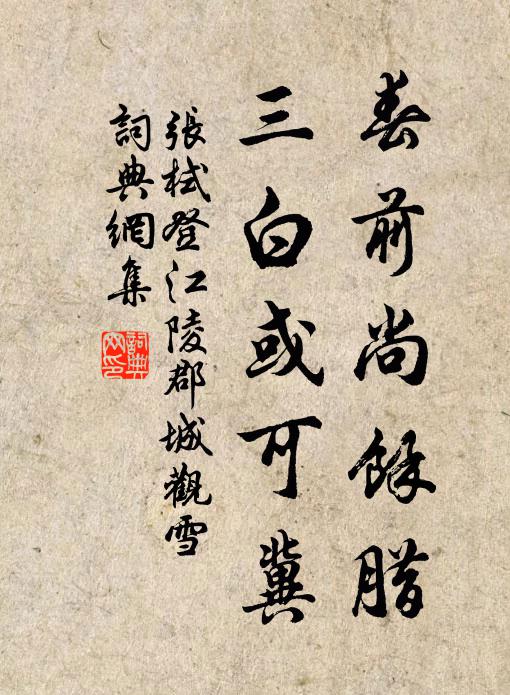 春前尚餘腊
三白或可冀
張栻登江陵郡城觀雪
詞典網集
詞典网印